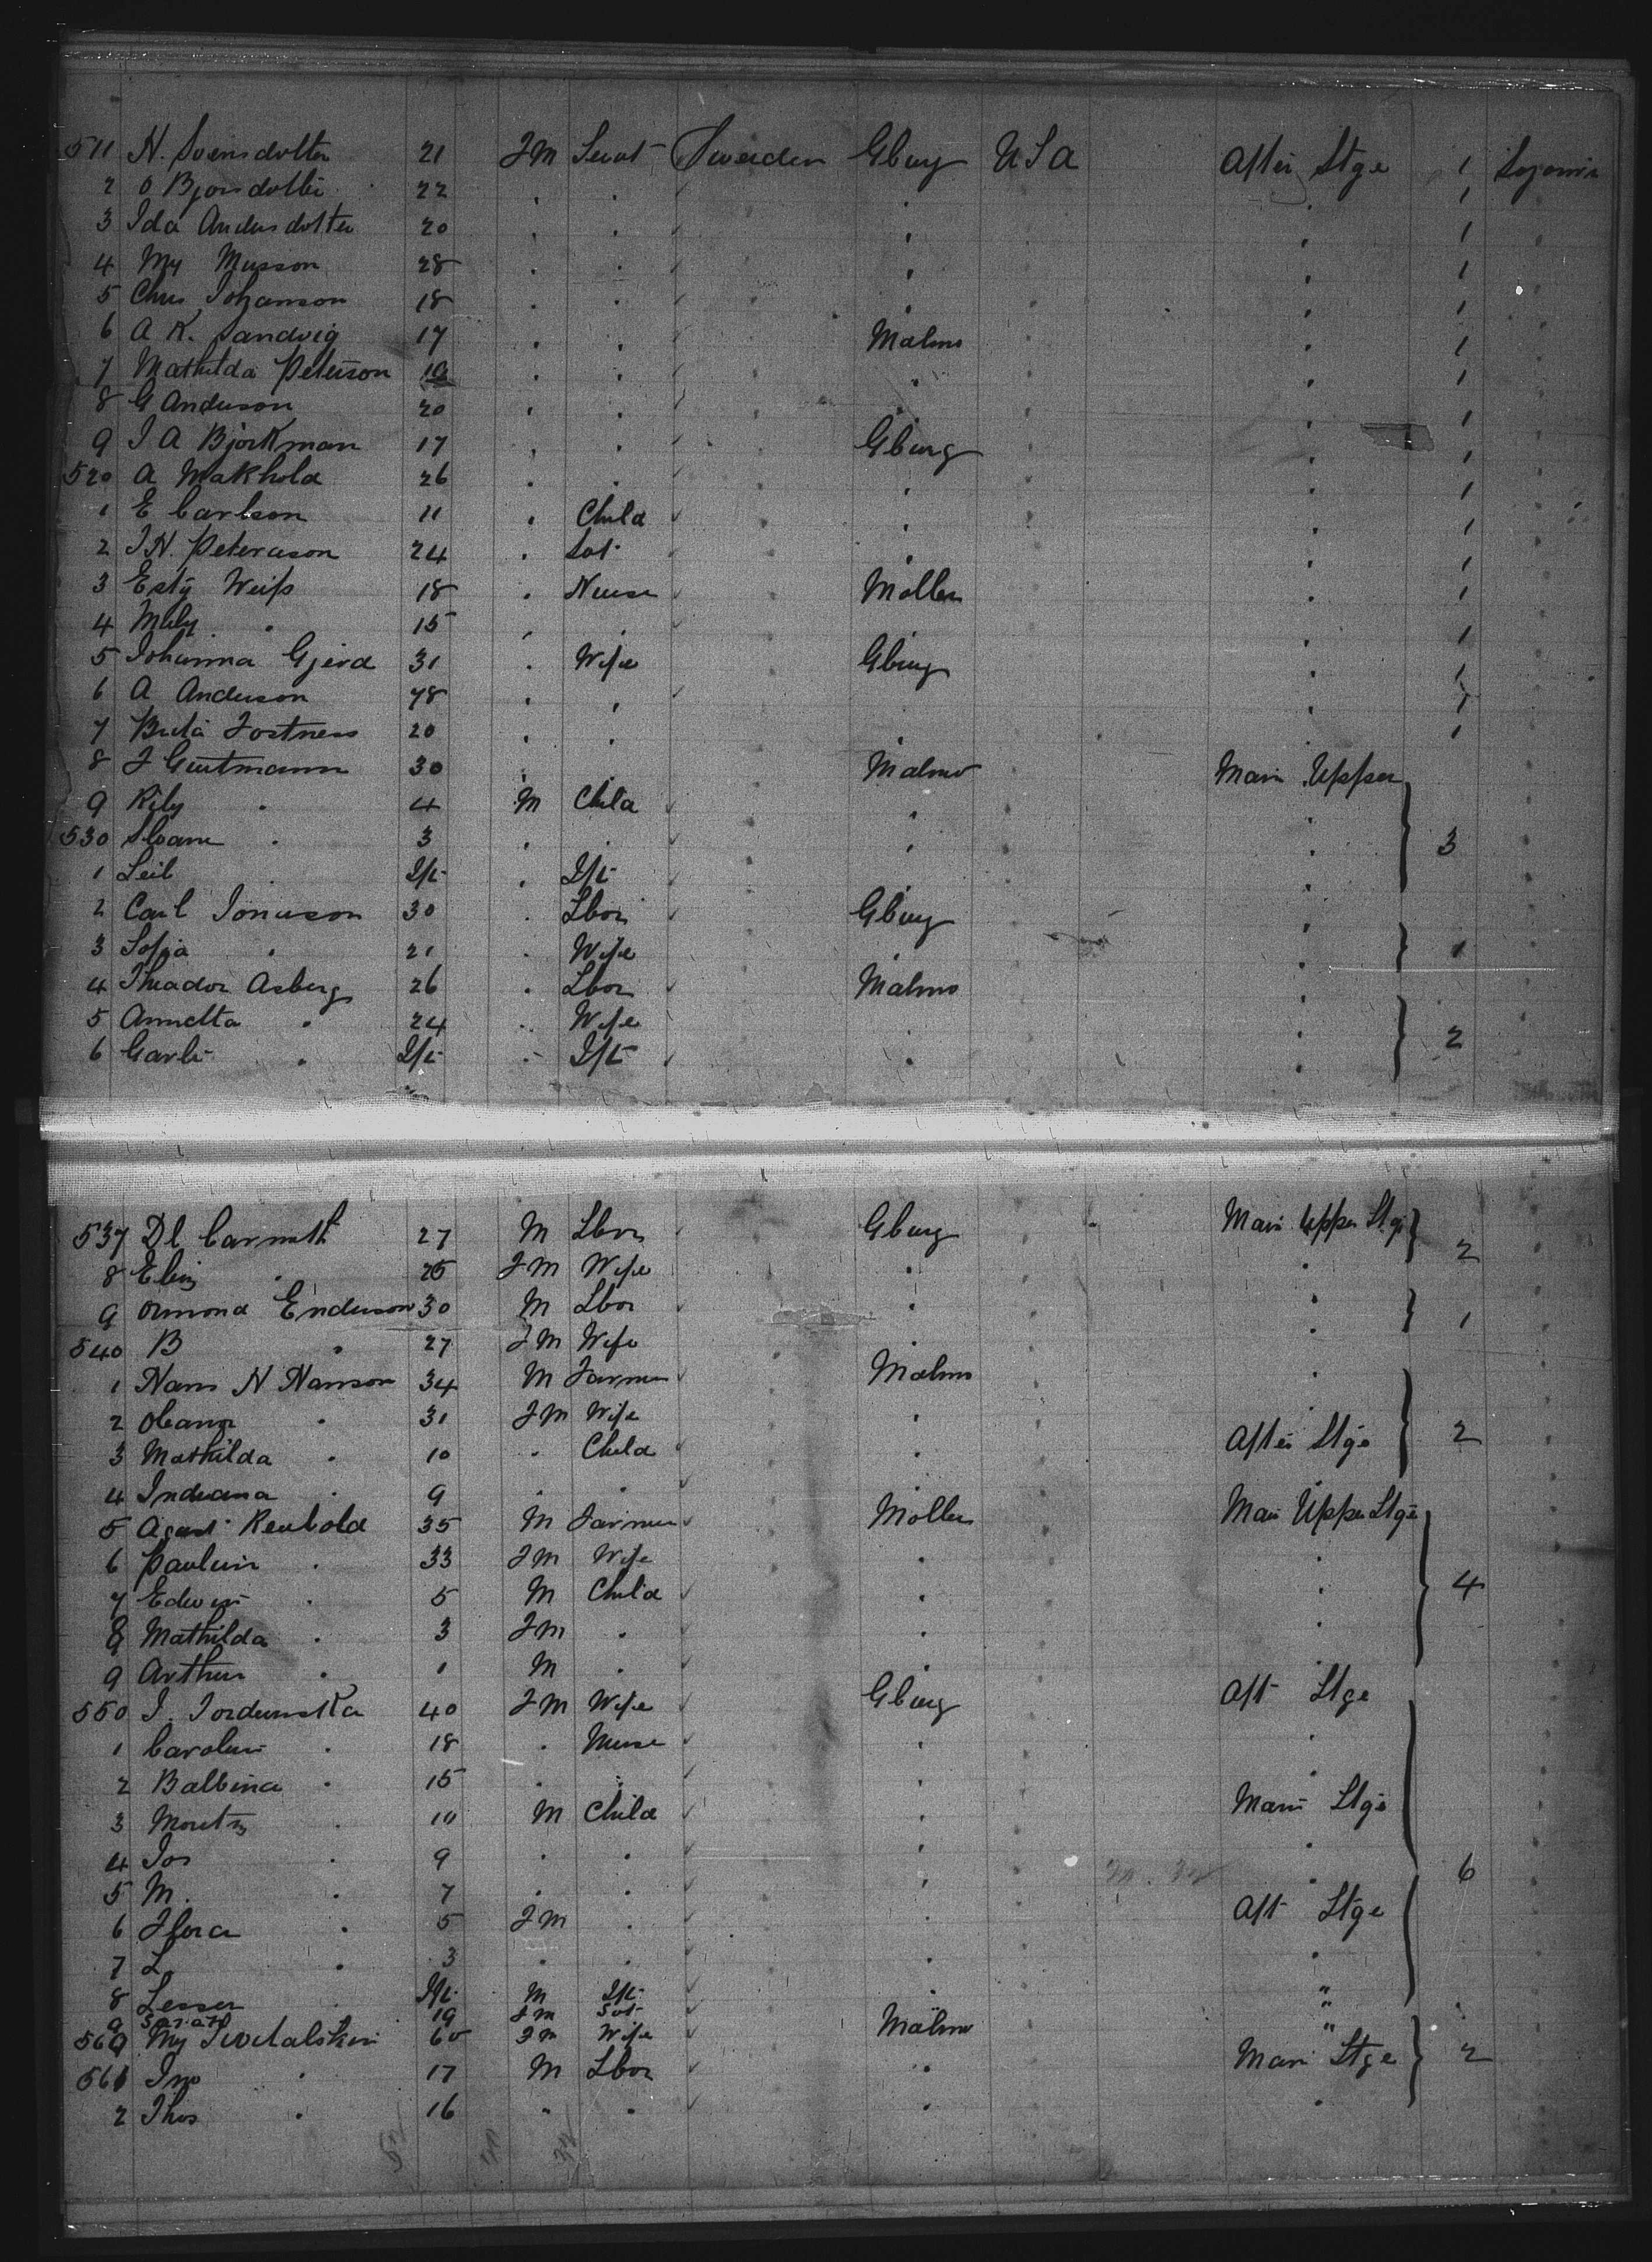 511 H. Svensdotter 21 FM Servt Sweden Gburg USA After Stge 1 Sojourn
2 O Bjorsdotter 22 . . . . 1
3 Ida Andersdotter 20 . . . . 1
4 My Musson 28 . . . . 1
5 Chris Johanson 18 . . . . 1
6 A K. Sandvig 17 . . Malmo . 1
7 Mathilda Peterson 19 . . . . 1
8 G Anderson 20 . . . . 1
9 J A Bjorkman 17 . . Gburg . 1
520 A Makhold 26 . . . . 1
1 E Carlson 11 . Child . . 1
2 J H. Peterason 24 . Svt . . 1
3 Esty Weiss 18 . Nurse Moller . 1
4 Maly . 15 . . . 1
5 Johanna Gjerd 31 . Wife Gburg . 1
6 A Anderson 48 . . . . 1
7 Brita Fostness 20 . . . . 1
8 J Gutmann 30 . Malmo Main Upper
9 Rily . 4 M Child . .
530 Sloam . 3 . . . . 3
1 Leib . Ift . Ift . .
2 Carl Jonason 30 . Lbor Gburg .
3 Sofia . 21 . Wife . . 1
4 Theador Asberg 26 . Lbor Malmo .
5 Annetta . 24 . Wife . . 2
6 Garli . Ift . Ift . .
537 Dl Carnuth 27 M Lbor Gburg Main Upper Stge 2
8 Elin . 25 FM Wife . .
9 Ormond Enderson 30 M Lbor . . 1
540 B . 27 FM Wife . .
1 Hans H Hanson 34 M Farmer Malmo .
2 Oleana . 31 FM Wife . .
3 Mathilda . 10 . Child . After Stge 2
4 Indiana . 9 . .
5 August Reubold 35 M Farmer Moller Main Upper Stge
6 Paulin . 33 FM Wife . .
7 Edwin . 5 M Child . . 4
8 Mathilda . 3 FM . . .
9 Arthur . 1 M . . .
550 J. Jordumska 40 FM Wife Gburg Aft Stge
1 Carolin . 18 . Nurse . .
2 Balbina . 15 . . . .
3 Moritz . 10 M Child . Main Stge
4 Jos . 9 . . . .
5 M. . 7 . . . . 6
6 Flora . 5 FM . . Aft Stge
7 L . 3 . . . .
8 Lesser . Ift M Ift . "
9 Sarah 19 FM Svt "
560 My 60 FM Wife Malmo "
561 Jno . 17 M Lbor . Main Stge 2
2 Thos . 16 " . . .